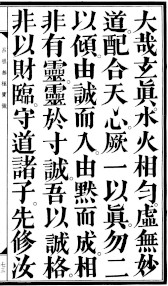 大哉玄眞水火相勻、虛無妙
道、配合天心、厥一以眞勿二
以傾、由誠而入、由默而成、相
非有靈、靈於寸誠、吾以誠格、
非以財臨、守道諸子、先修汝